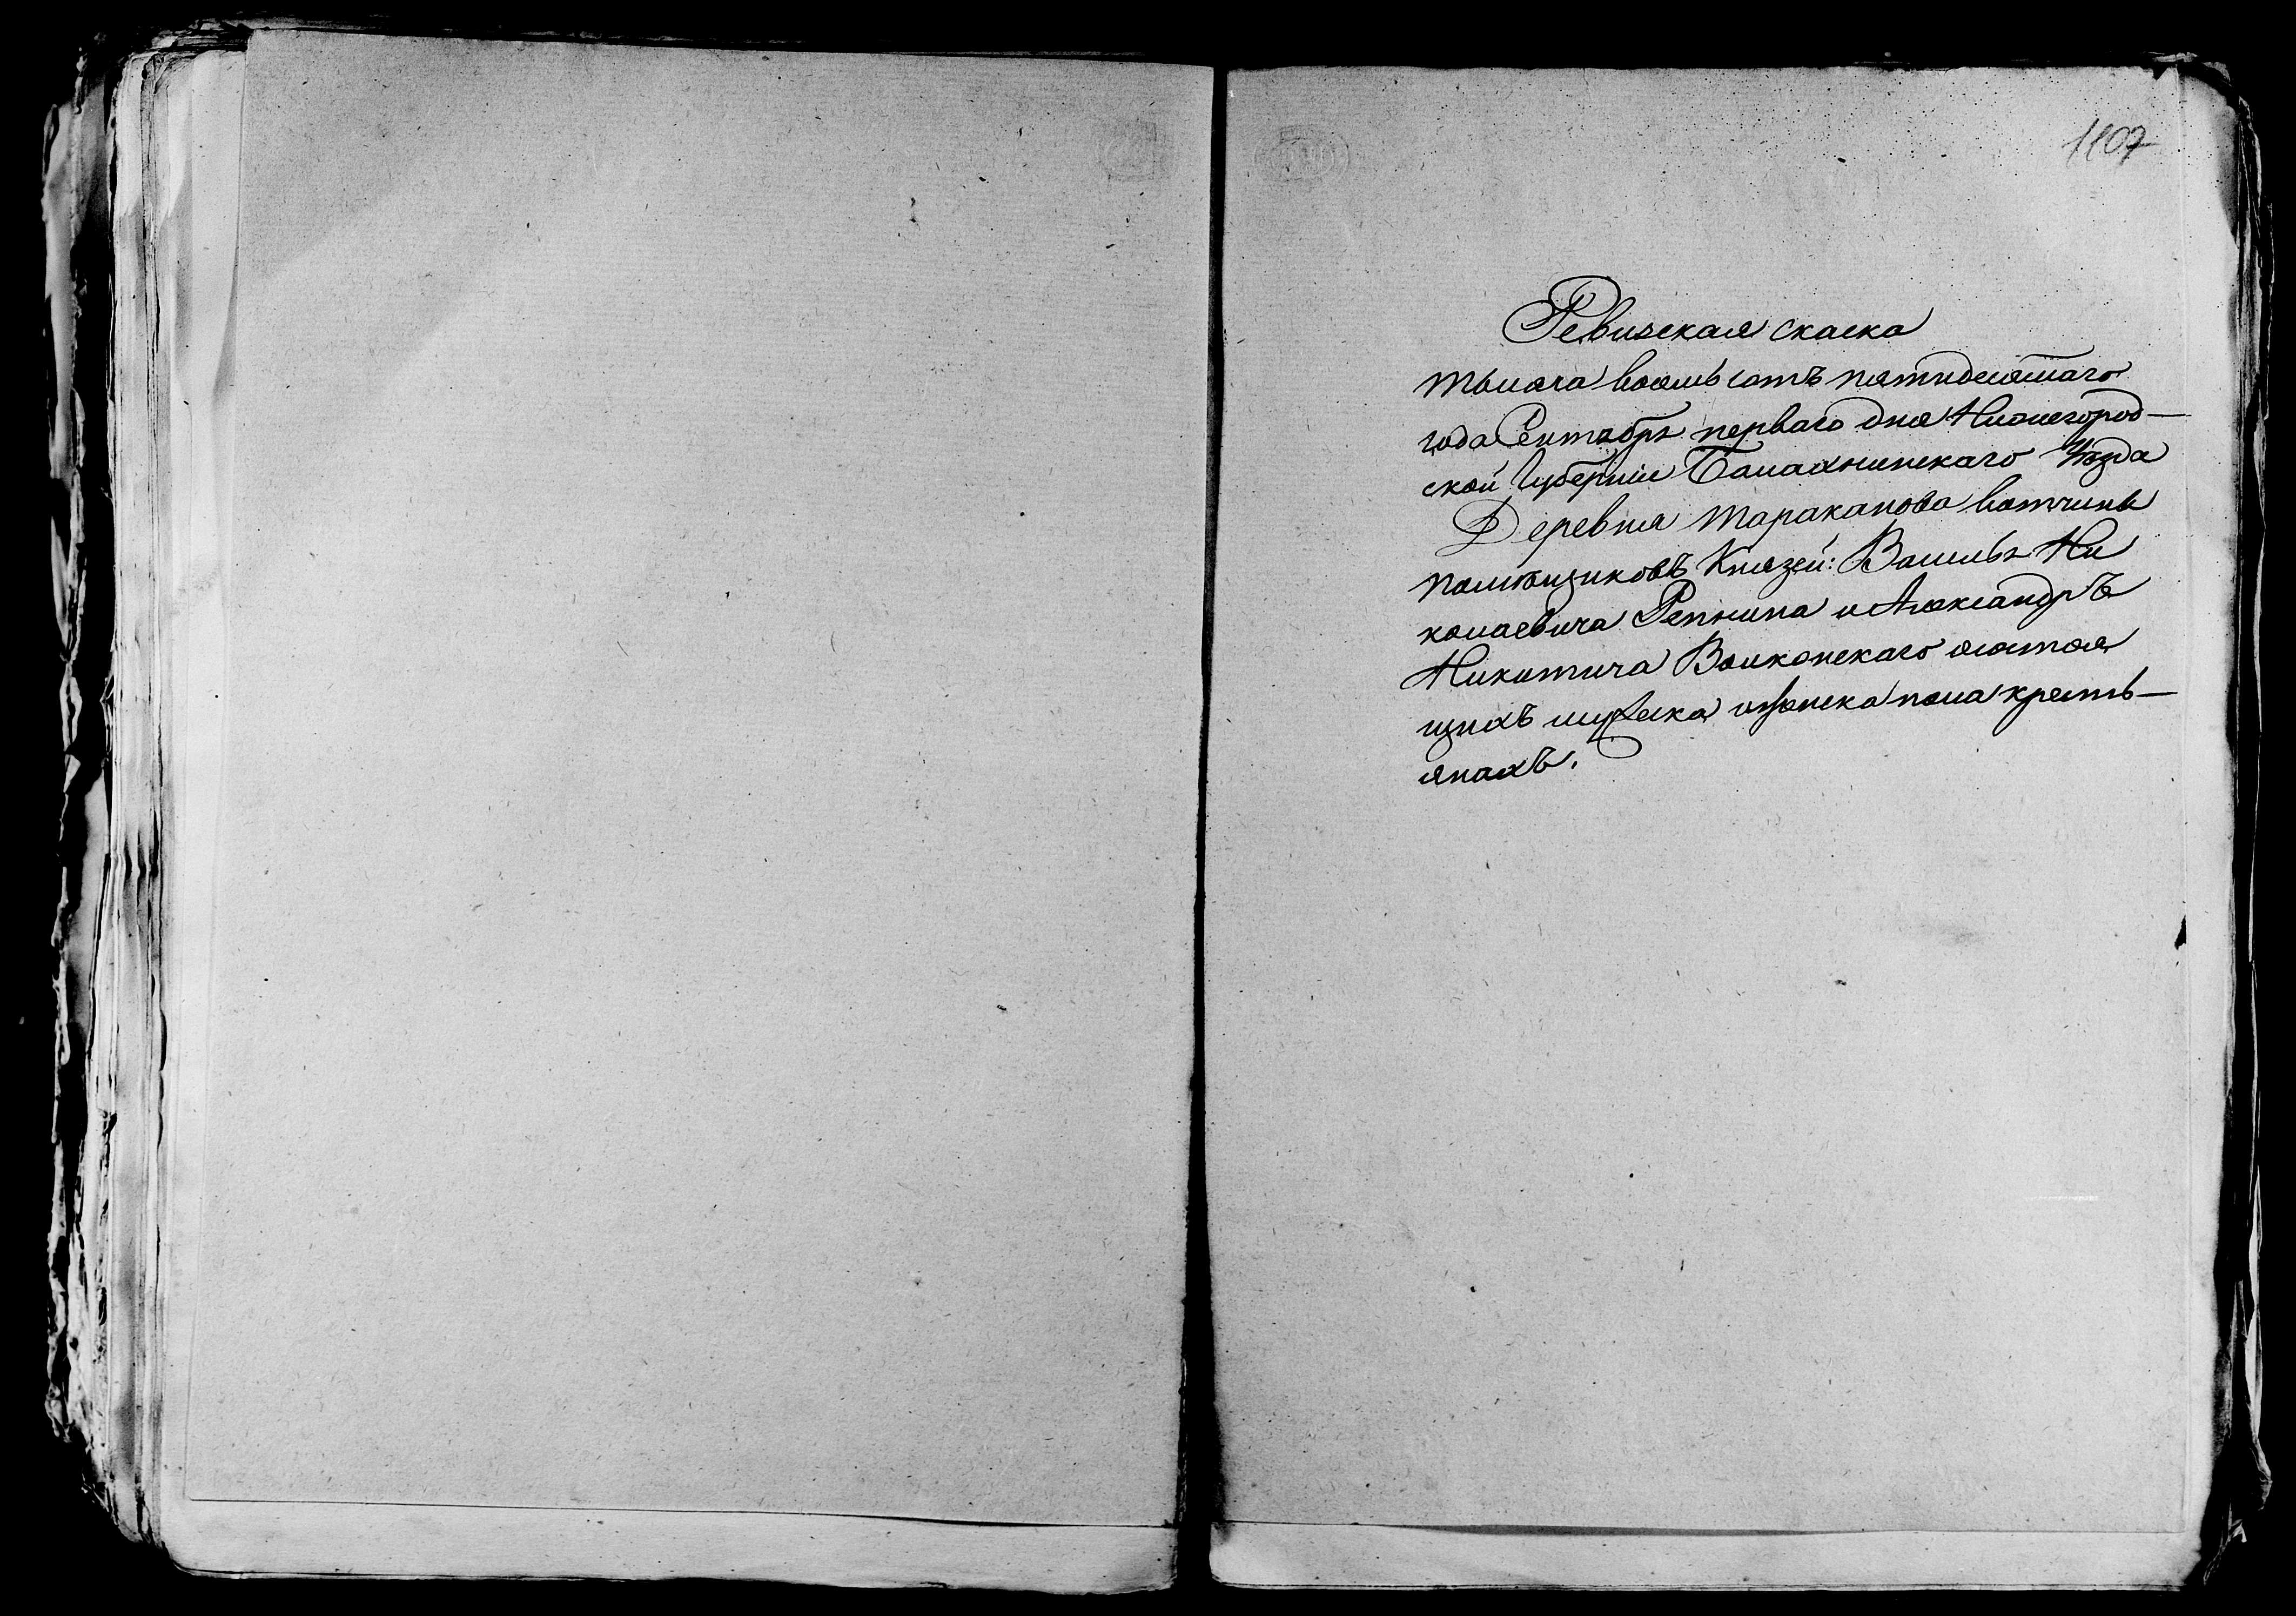 1107
Ревизская скаска
тысяча восемь сотъ пятидесятаго
года Сентября перваго дня Нижегород—
ской Губерніи Балахнинскаго Уѣзда
Деревня Тараканова вотчины
помѣщиковъ Князей: Василья Ни
колаевича Репнина и Александръ
Никитича Волконскаго состоя
щихъ мужеска и женска пола кресть—
янахъ.